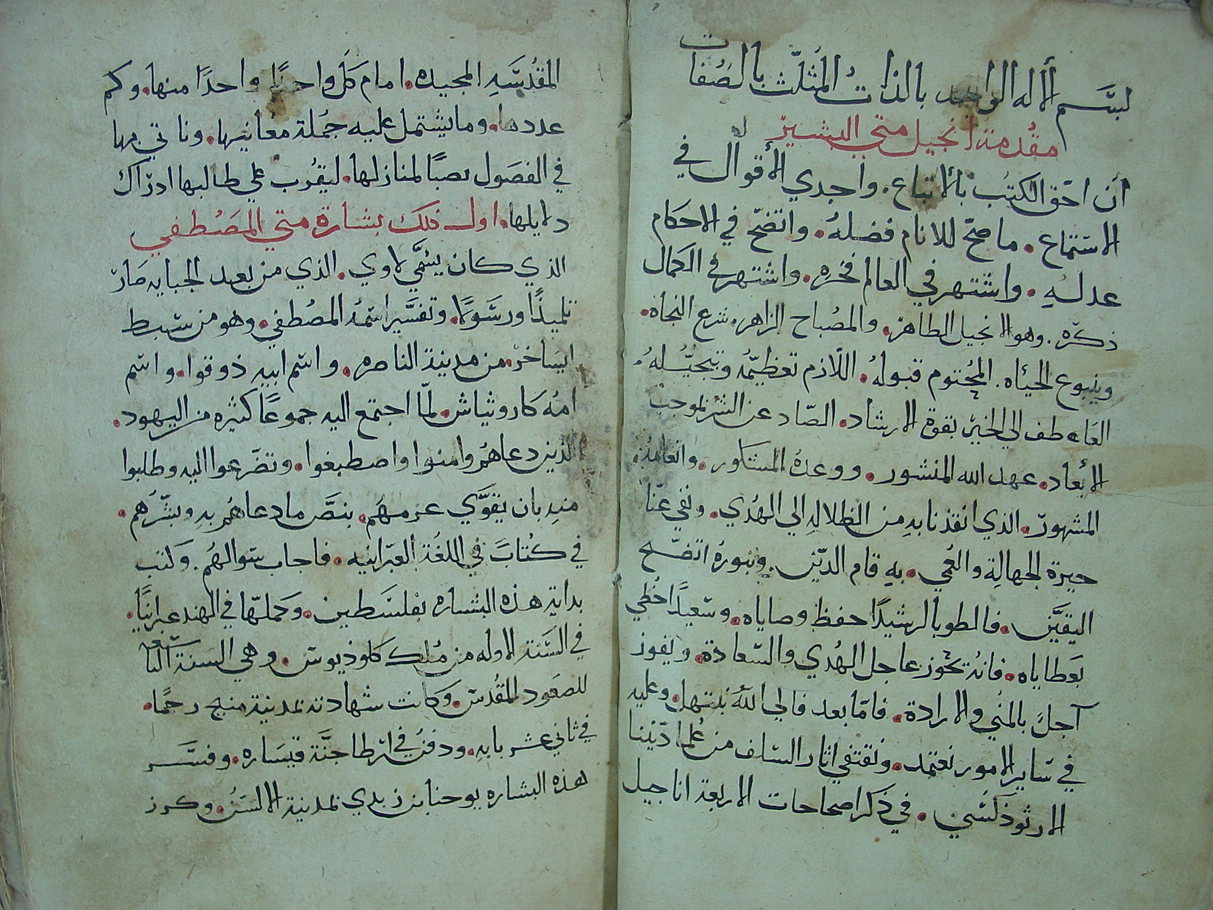 لبسم الاله الواحد بالذات المثلث بالصفات
مقدمة انجيل متي البشير
أن احق الكتب بالاتباع. واجدي الاقوال في
الاستماع. ما صح للانام فضله. واتضح في الاحكام
عدله. واشتهر في العالم فخره. واشتهر في الكمال
ذكره. وهو الانجيل الطاهر. والمصباح الزاهر. شرع النجاه.
وينبوع الحياه. المحتوم قبوله. اللازم تعظيمه وتبجيله.
العاطف الي الخير بقوة الارشاد. الصاد عن الشر
الابعاد. عهد الله المنشور. ووعده وانعامه
المشهور. الذي انقذنا به من الظلاله الي الهدي. ونفي عنا
حيرة الجهالة والعمي. به قام الدين. وبنوره اتضح
اليقين. فالطوبا لرشيدًا حفظ وصاياه. وسعيدًا حظي
بعطاياه. فانه يحوز عاجل الهدي والسعادة. ويفوز
آجل بالمني والارادة. فاما بعد فالي الله نبتهل. وعليه
في ساير الامور نعتمد. ونقتفي اثار السلف من علما ديننا
الارثوذكسي. في ذكر اصحاحات الاربعة اناجيل
المقدسه المجيده. امام كل واحدًا واحدًا منها. وكم
عددها. وما يشتمل عليه جملة معانيها. وناتي بها
في الفصول نصبًا لمنازلها. ليقرب علي طالبها ادراك
دلايلها. اول ذلك بشارة متي المصطفي
الذي كان يسمي لاوي. الذي من بعد الجبايه صار
تلميذًا ورسولًا. وتفسير اسمه المصطفي. وهو من سبط
ايساخر. من مدينة الناصره. واسم ابيه ذوقوا. واسم
امه كاروثياش. لما اجتمع اليه جموعًا كثيره من اليهود.
الذين دعاهم وامنوا واصطبغوا. وتضرعوا اليه وطلبوا
منه بان يقوي عزمهم. بنص ما دعاهم به وبشرهم.
في كتاب في اللغة العبرانيه. فاجاب سوالهم. وكتب
بداية هذه البشاره بفلسطين. وكملها في الهند عبرانيًا.
في السنة الاوله من ملك كلوذيوس. وهي السنة التاسعه
للصعود المقدس. وكانت شهادته بمدينة منبج رجمًا.
في ثاني عشر بابه. ودفن في قيساره. وفسر
هذه البشاره يوحنا بن زبدي بمدينة الالسن. وكرز